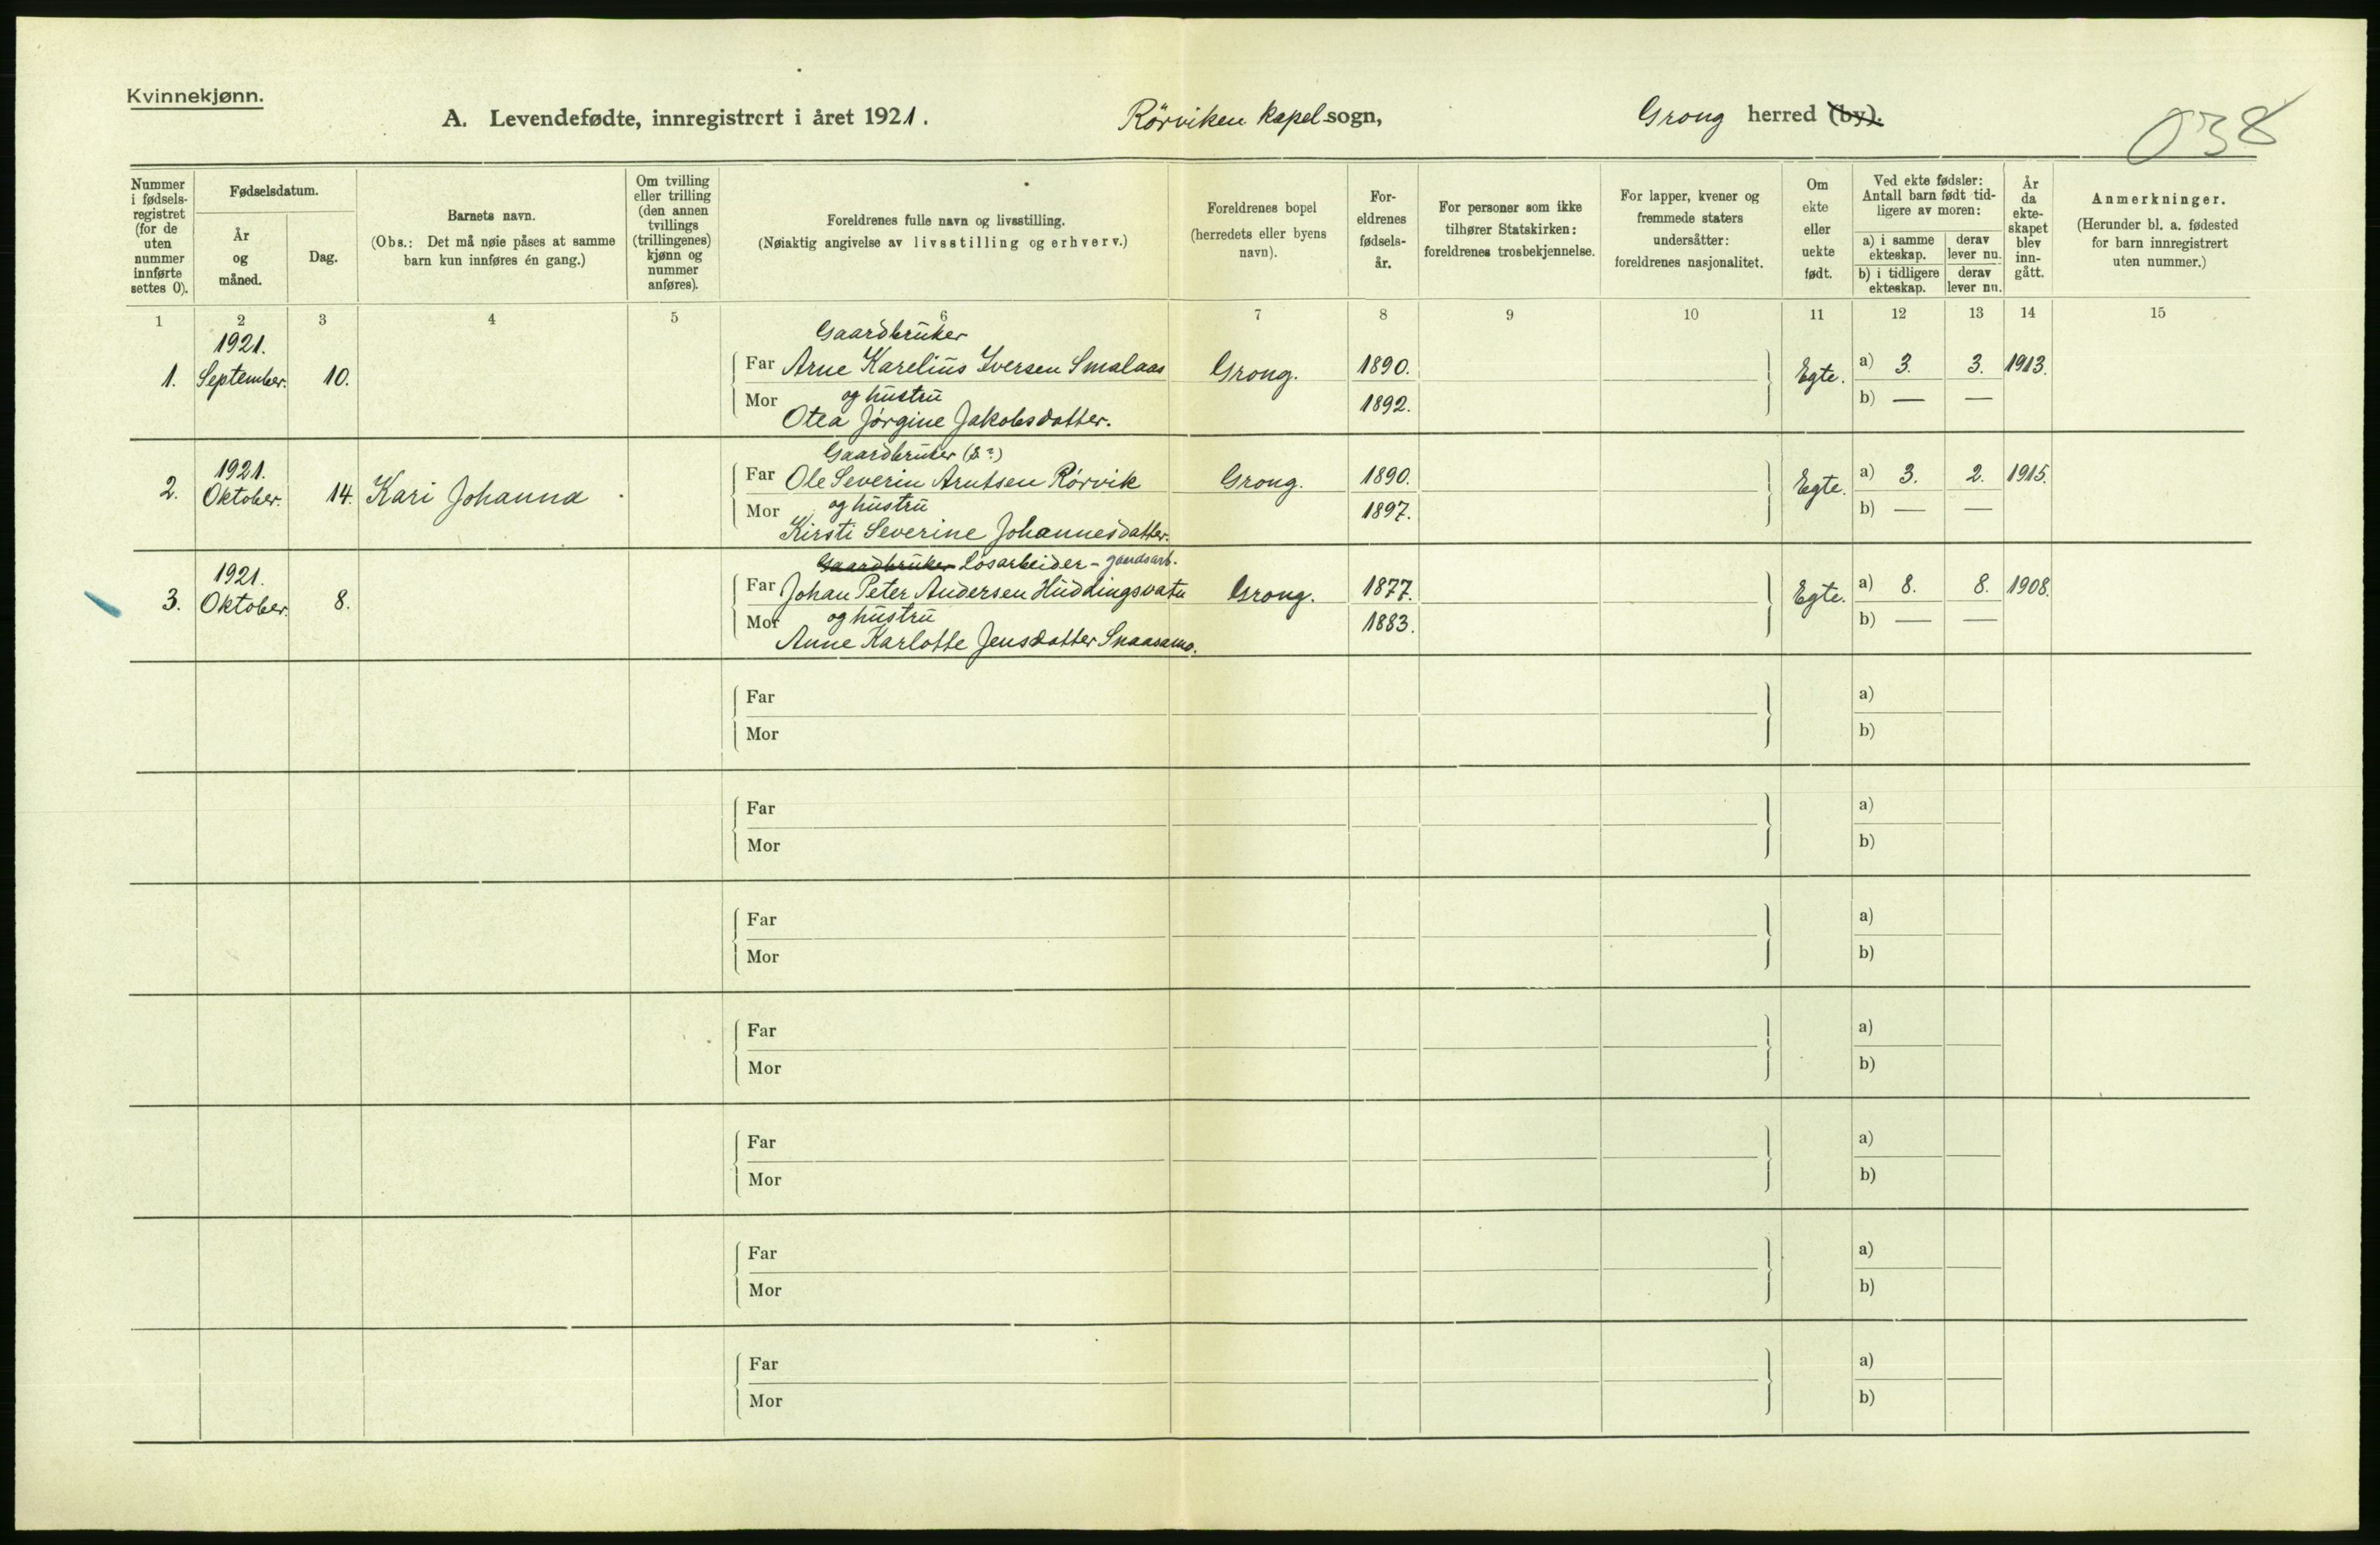 Kvinnekjønn.
A. Levendefødte, innregistrert i året 1921.
Rörviken kapel sogn,
Grong herred (by).
038
Nummer i fødselsregistret (for de uten nummer innførte settes 0).
Fødselsdatum.
År og måned.
Dag.
Barnets navn.
(Obs.: Det må nøie påses at samme barn kun innføres én gang.)
Om tvilling eller trilling (den annen tvillings (trillingenes) kjønn og nummer anføres).
Foreldrenes fulle navn og livsstilling.
(Nøiaktig angivelse av livsstilling og erhverv.)
Foreldrenes bopel (herredets eller byens navn).
Foreldrenes fødselsår.
For personer som ikke tilhører Statskirken: foreldrenes trosbekjennelse.
For lapper, kvener og fremmede staters undersåtter: foreldrenes nasjonalitet.
Om ekte eller uekte født.
Ved ekte fødsler: Antall barn født tidligere av moren:
a) i samme ekteskap.
derav lever nu.
b) i tidligere ekteskap.
derav lever nu.
År da ekteskapet blev inngått.
Anmerkninger.
(Herunder bl. a. fødested for barn innregistrert uten nummer.)
1 2 3 4 5 6 7 8 9 10 11 12 13 14 15
Gaardbruker
1921.
1. September. 10. Far Arne Karelius Iversen Smalaas Grong. 1890. Egte. a) 3. 3. 1913.
Mor og hustru 1892. b) — —
Otea Jørgine Jakobsdatter.
Gaardbruker (S?)
1921.
2. Oktober. 14. Kari Johanna Far Ole Severin Arntsen Rörvik Grong. 1890. Egte. a) 3. 2. 1915.
Mor og hustru 1897. b) — —
Kirsti Severine Johannesdatter.
Gaardbruker Løsarbeider - gaardsarb.
1921.
3. Oktober. 8. Far Johan Peter Andersen Huddingsvatn Grong. 1877. Egte. a) 8. 8. 1908.
Mor og hustru 1883. b) — —
Anne Karlotte Jensdatter Snaasamo.
Far a)
Mor b)
Far a)
Mor b)
Far a)
Mor b)
Far a)
Mor b)
Far a)
Mor b)
Far a)
Mor b)
Far a)
Mor b)